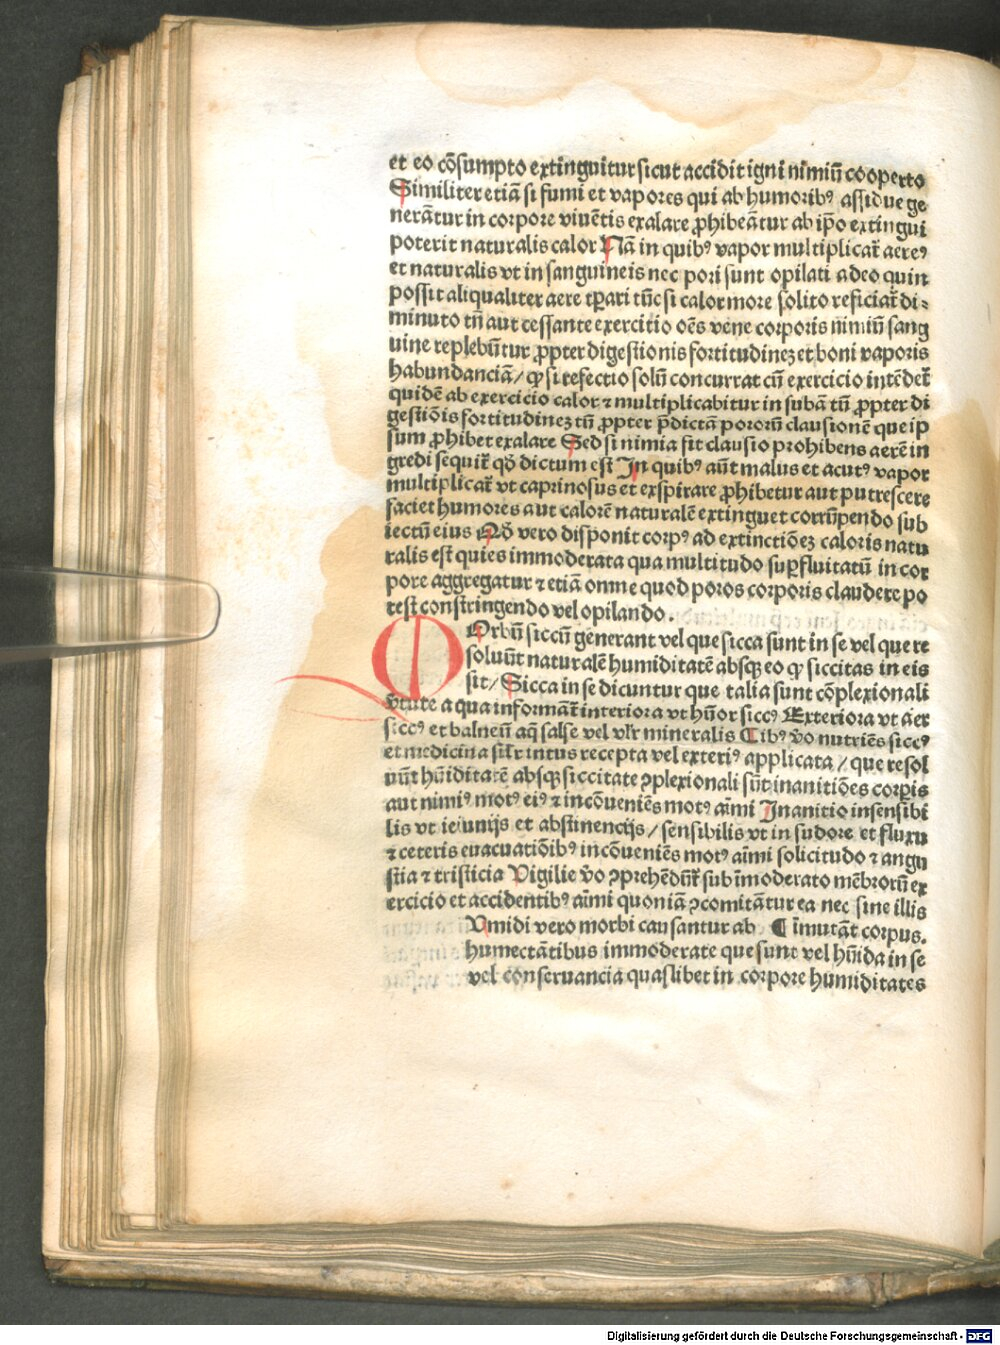 et eo cōsumpto extinguitur sicut accidit igni nimiū cooperto
Similiter etiā si fumi et vapores qui ab humoribꝰ assidue ge
nerātur in corpore viuētis exalare ꝓhibeātur ab ip̄o extingui
poterit naturalis calor Nā in quibꝰ vapor multiplicat̄ aereꝰ
et naturalis vt in sanguineis nec pori sunt opilati adeo quin
possit aliqualiter aere tꝑari tūc si calor more solito reficiat̄ di⸗
minuto tn̄ aut cessante exercitio oēs vene corporis nimiū sang
uine replebūtur ꝓpter digestionis fortitudinez et boni vaporis
habundanciā/ ꝙ si refectio solū concurrat cū exercicio intēdet̄
quidē ab exercicio calor ⁊ multiplicabitur in subā tū ꝓpter di
gestiōis fortitudinez tū ꝓpter p̄dictā pororū clausionē que ip
sum ꝓhibet exalare Sed si nimia sit clausio prohibens aerē in
gredi sequit̄ qd̄ dictum est In quibꝰ aūt malus et acutꝰ vapor
multiplicat̄ vt caprinosus et exspirare ꝓhibetur aut putrescere
faciet humores aut calorē naturalē extinguet corrūpendo sub
iectū eius Ad̄ vero disponit corpꝰ ad extinctiōez caloris natu
ralis est quies immoderata qua multitudo suꝑfluitatū in cor
pore aggregatur ⁊ etiā omne quod poros corporis claudere po
test constringendo vel opilando.
MOrbū siccū generant vel que sicca sunt in se vel que re
soluūt naturalē humiditatē absqꝫ eo ꝙ siccitas in eis
sit/ Sicca in se dicuntur que talia sunt cōplexionali
v̄tute a qua informāt̄ interiora vt hūor siccꝰ Exteriora vt aer
siccꝰ et balneū aq̄ salse vel vlr̄ mineralis Cibꝰ v̄o nutriēs siccꝰ
et medicina silr̄ intus recepta vel exteriꝰ applicata/ que resol
uūt hūiditatē absqꝫ siccitate ꝯplexionali sūt inanitiōes corꝑis
aut nimiꝰ motꝰ eiꝰ ⁊ incōueniēs motꝰ aīmi Inanitio insensibi
lis vt ieiunijs et abstinencijs/ sensibilis vt in sudore et fluxu
⁊ ceteris euacuatiōibꝰ incōueniēs motꝰ aīmi solicitudo ⁊ angu
stia ⁊ tristicia Vigilie v̄o ꝯprehēdūt̄ sub īmoderato mēbrorū ex
ercicio et accidentibꝰ aīmi quoniā ꝯcomitātur ea nec sine illis
Vmidi vero morbi causantur ab ¶ īmutāt corpus.
humectātibus immoderate que sunt vel hūida in se
vel conseruancia quaslibet in corpore humiditates
Digitalisierung gefördert durch die Deutsche Forschungsgemeinschaft - DFG